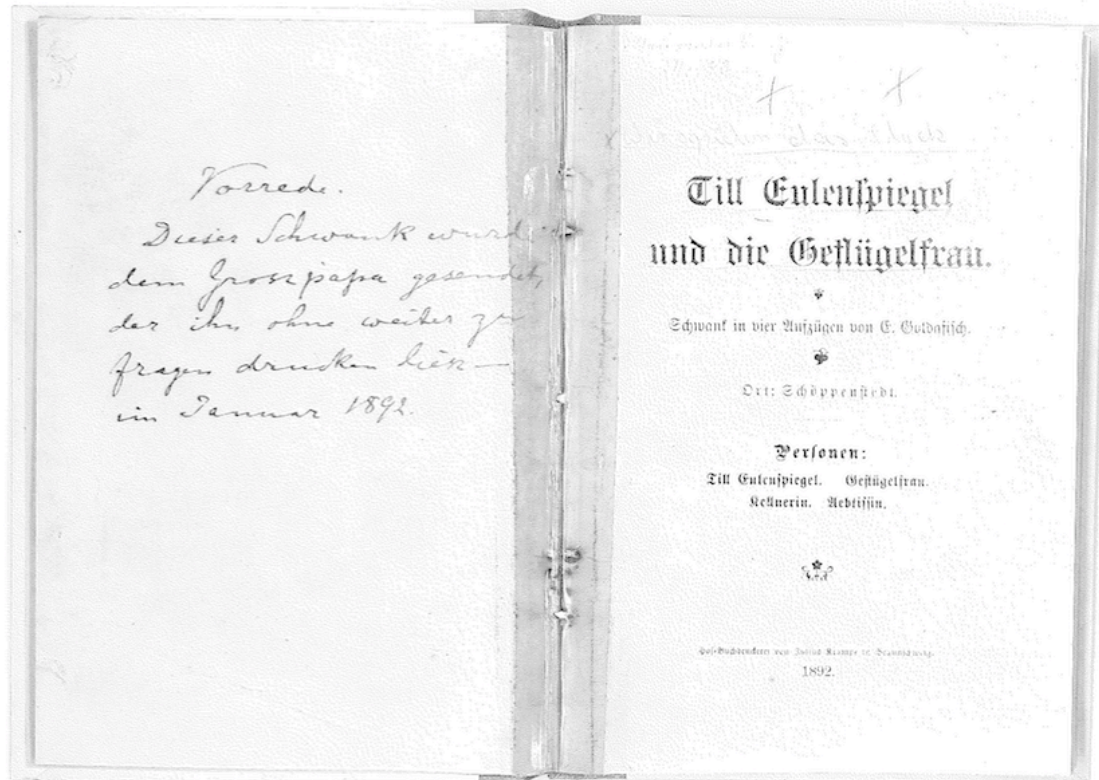 Vorrede.
Dieser Schwank wurd
dem Grosspapa gesendet,
der ihn ohne weiter zu
fragen drucken liess—
im Januar 1892.
Till Eulenspiegel
und die Geflügelfrau.
Schwank in vier Aufzügen von E. Goldafisch.
Ort: Schöppenstedt.
Personen:
Till Eulenspiegel. Geflügelfrau.
Kellnerin. Aebtissin.
Hof-Buchdruckerei von Julius Krampe in Braunschweig.
1892.